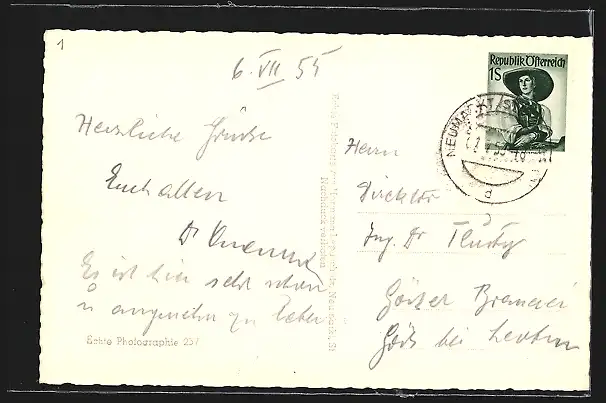 1
6. VII 55
Herzliche Grüße
Euch allen
Dr
Es ist hier sehr schön
u angenehm zu leben
Echte Photographie 257
Nachdruck verboten
Republik Österreich
1S
NEUMARKT
d
Herrn
Direktor
Ing. Dr
Gösser Brauerei
Göss bei Leoben